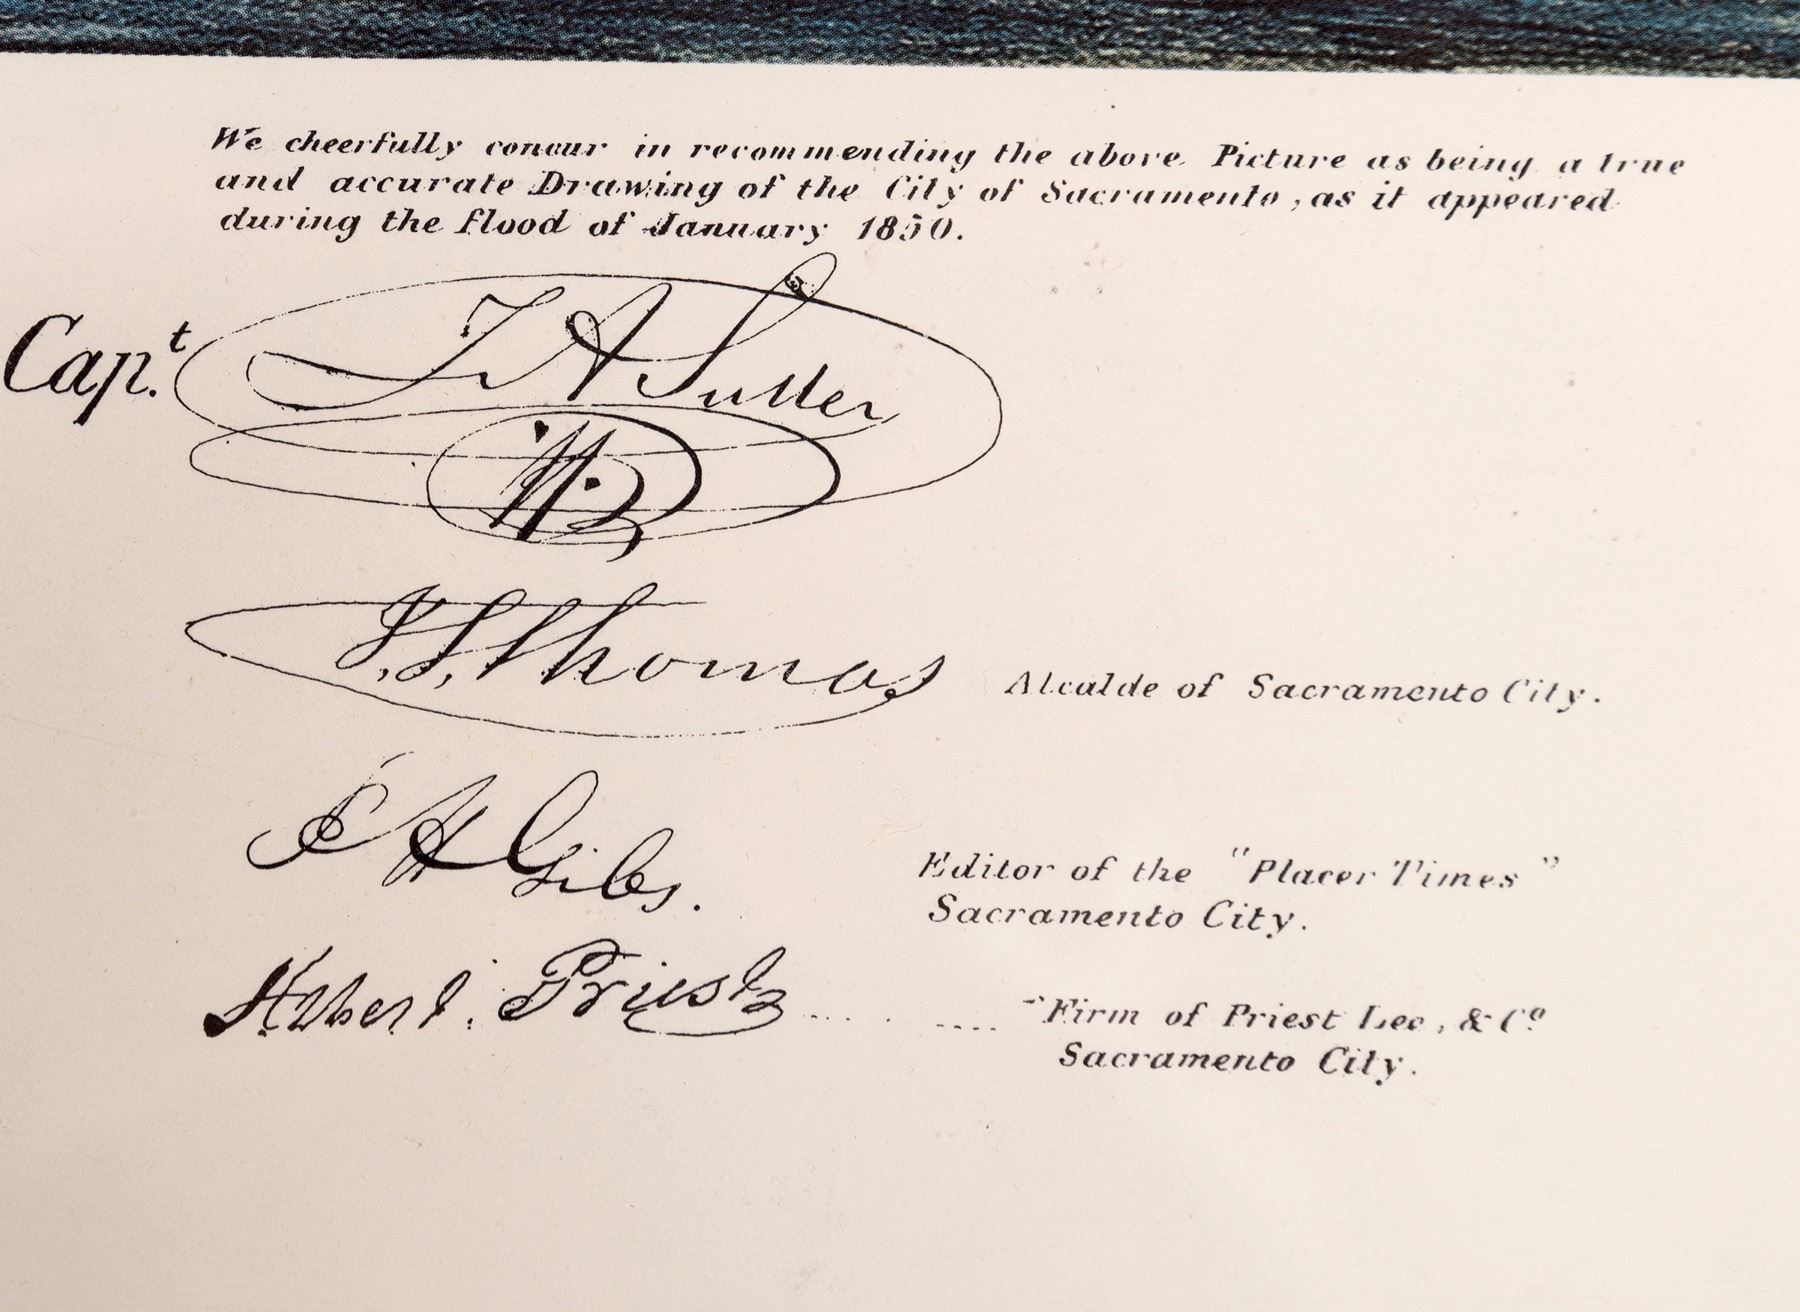 We cheerfully concur in recommending the above Picture as being a true
and accurate Drawing of the City of Sacramento, as it appeared
during the flood of January 1850.
Capt. J A Sutter
J. S. Thomas Alcalde of Sacramento City.
H Gibs. Editor of the "Placer Times"
Sacramento City.
Albert Priest Firm of Priest Lee, & Co
Sacramento City.